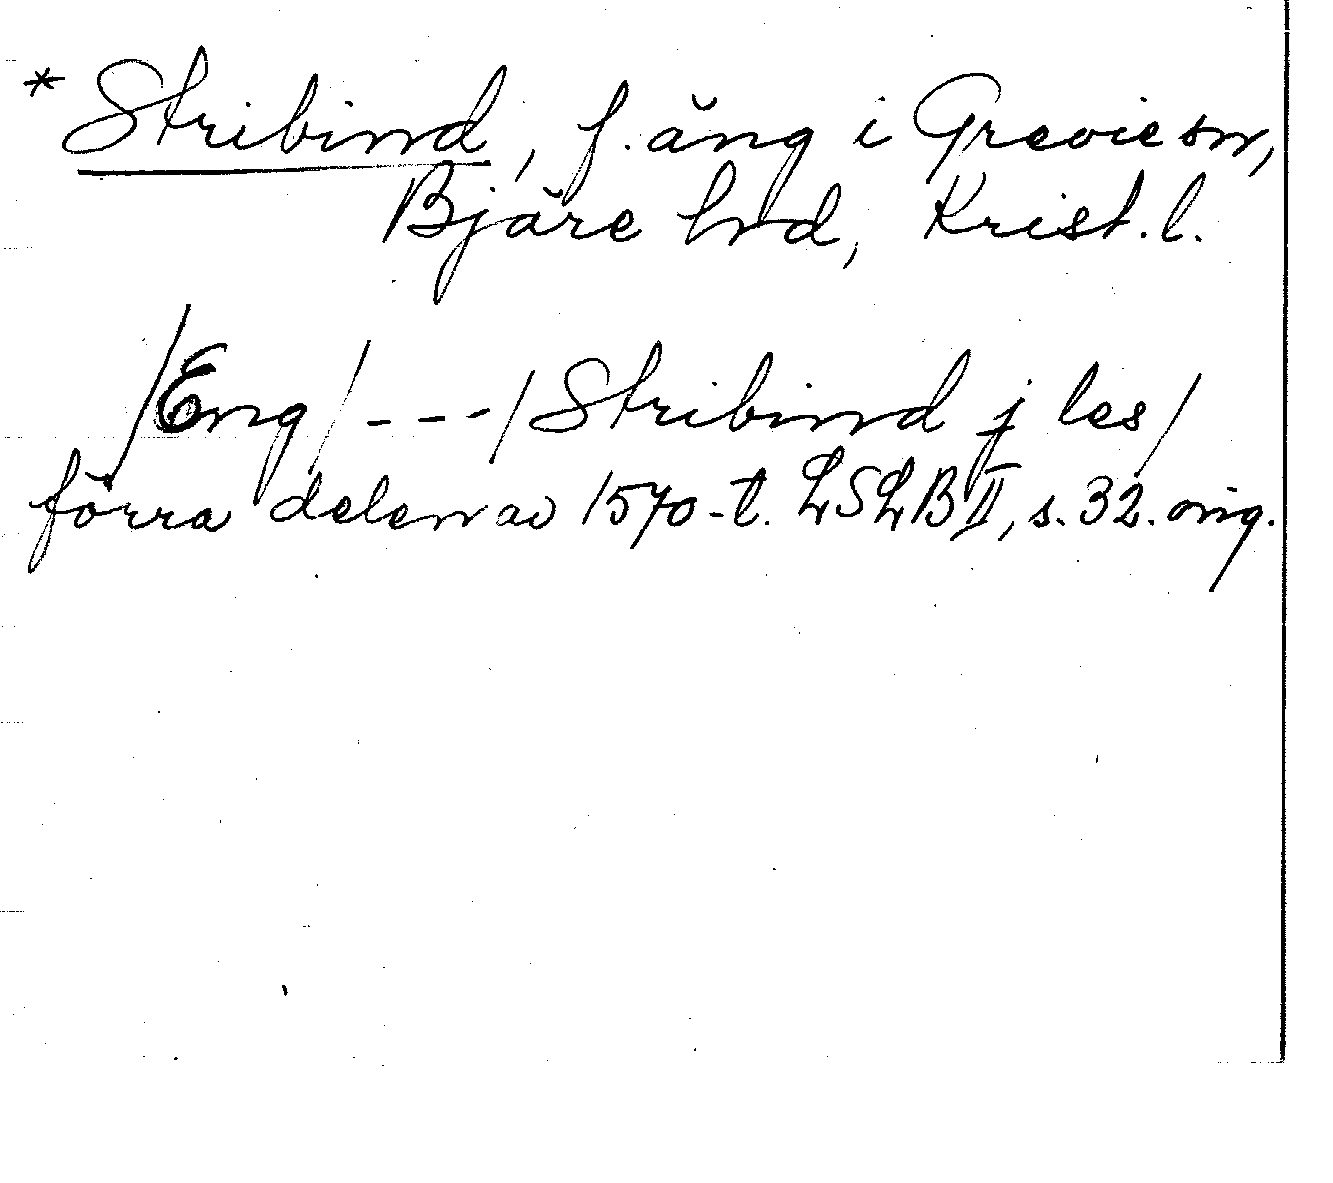 * Stribind, f. äng i Grevie sn,
Bjäre hrd, Krist. l.
/Eng/ --- /Stribind j les/
förra delen av 1570-t. LSLB II, s. 32. orig.